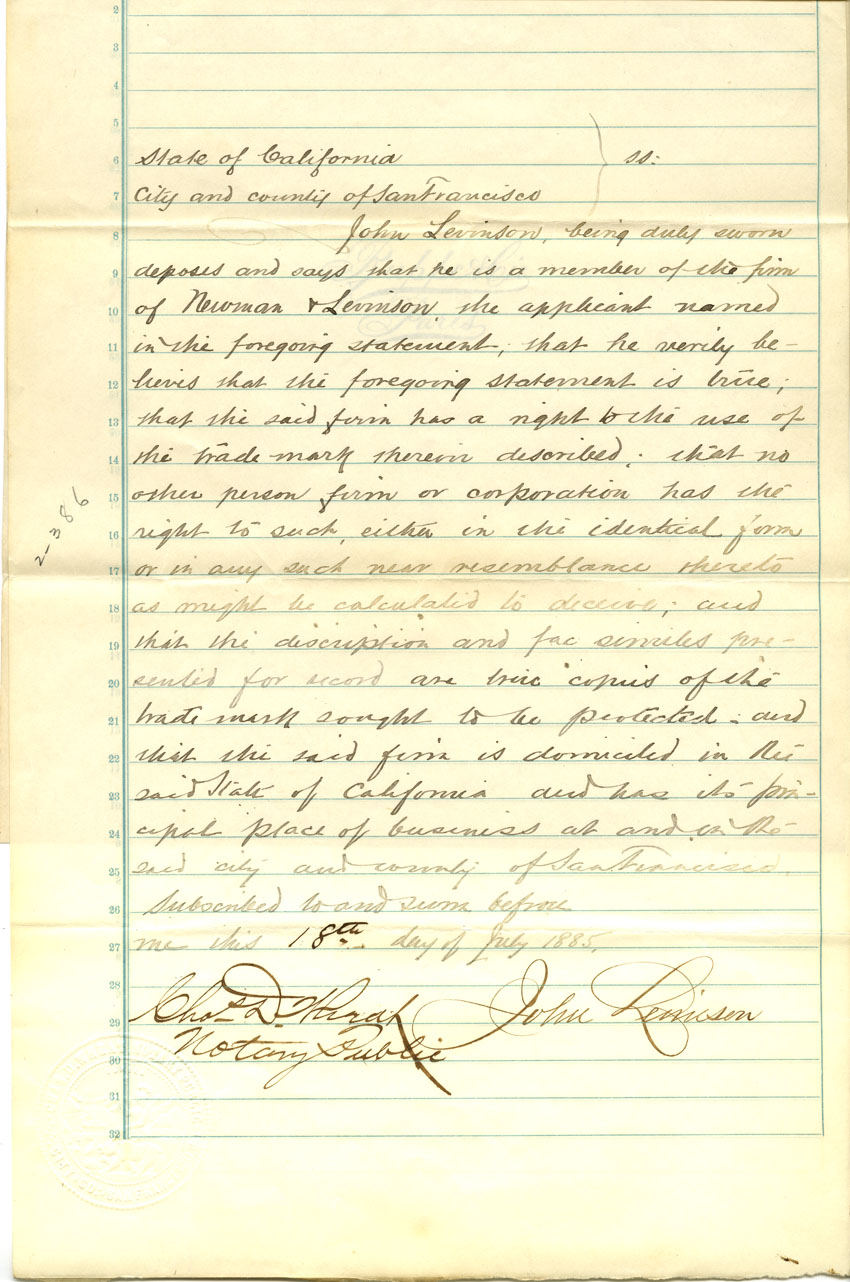 2
3
4
5
6 State of California } ss:
7 City and county of San Francisco
8 John Levinson, being duly sworn
9 deposes and says that he is a member of the firm
10 of Newman & Levinson, the applicant named
11 in the foregoing statement; that he verily be-
12 lieves that the foregoing statement is true;
13 that the said firm has a right to the use of
14 the trade-mark therein described; that no
15 other person firm or corporation has the
16 right to such, either in the identical form
17 or in any such near resemblance thereto
18 as might be calculated to deceive; and
19 that the discription and fac similes pre-
20 sented for record are true copies of the
21 trade mark sought to be protected; and
22 that the said firm is domiciled in the
23 said State of California and has its prin-
24 cipal place of business at and in the
25 said city and county of San Francisco.
26 Subscribed to and sworn before
27 me this 18th day of July 1885.
28
29 Chas. D. John Levinson
30 Notary Public
31
32
2-386